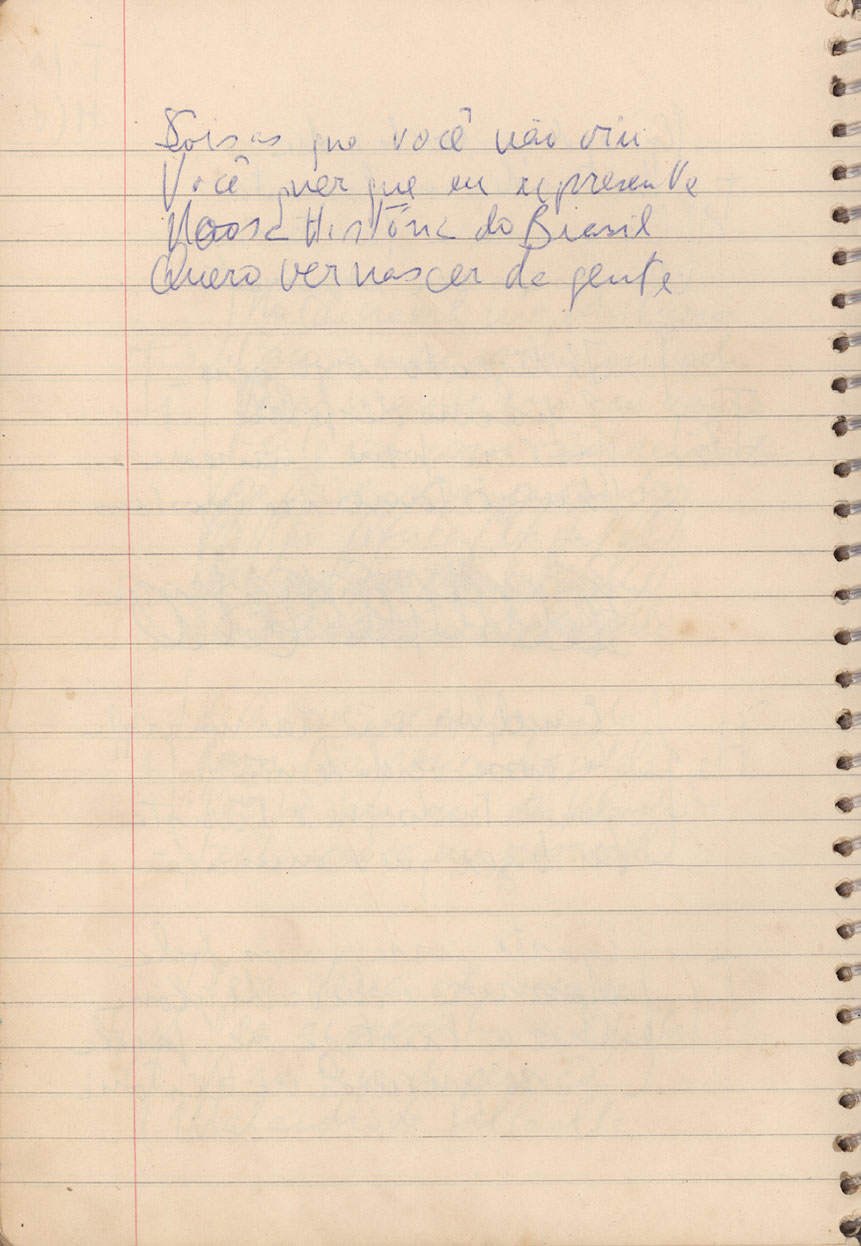 Coisas que você não viu
Você quer que eu represente
Nossa História do Brasil
Quero ver nascer da gente